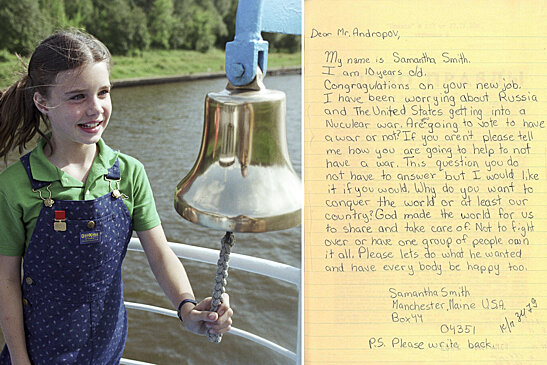 Dear Mr. Andropov,
My name is Samantha Smith.
I am 10 years old.
Congragulations on your new job.
I have been worrying about Russia
and The United States getting into a
Nuculear war. Are going to vote to have
a war or not? If you arent please tell
me how you are going to help to not
have a war. This question you do
not have to answer but I would like
it if you would. Why do you want to
conquer the world or at least our
country? God made the world for us
to share and take care of. Not to fight
over or have one group of people own
it all. Please lets do what he wanted
and have every body be happy too.
Samantha Smith
Manchester, Maine U.S.A.
Box 44
04351
P.S. Please write back.